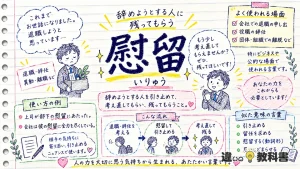 辞めようとする人に
残ってもらう
慰留
いりゅう
これまで
お世話になりました。
退職しようと
思っています…
退職・辞任
異動・離職など
もう少し
考え直して
もらえませんか？
ぜひ、
残ってほしいです！
よく使われる場面
会社での退職の申し出
役職の辞任
団体・組織での離脱 など
特にビジネスや
公的な場面で
使われる言葉です。
辞めようとする人を引き止めて、
考え直してもらい、残ってもらうこと。
使い方の例
上司が部下の慰留にあたった。
会社は彼の慰留に全力を尽くしている。
こんな流れ
退職・辞任を
考える
慰留して
引き止める
考え直して
残る
似た意味の言葉
引き止める
留任を求める
慰留する（動詞形）
人の力を大切に思う気持ちから生まれる、あたたかい言葉です。
教科書